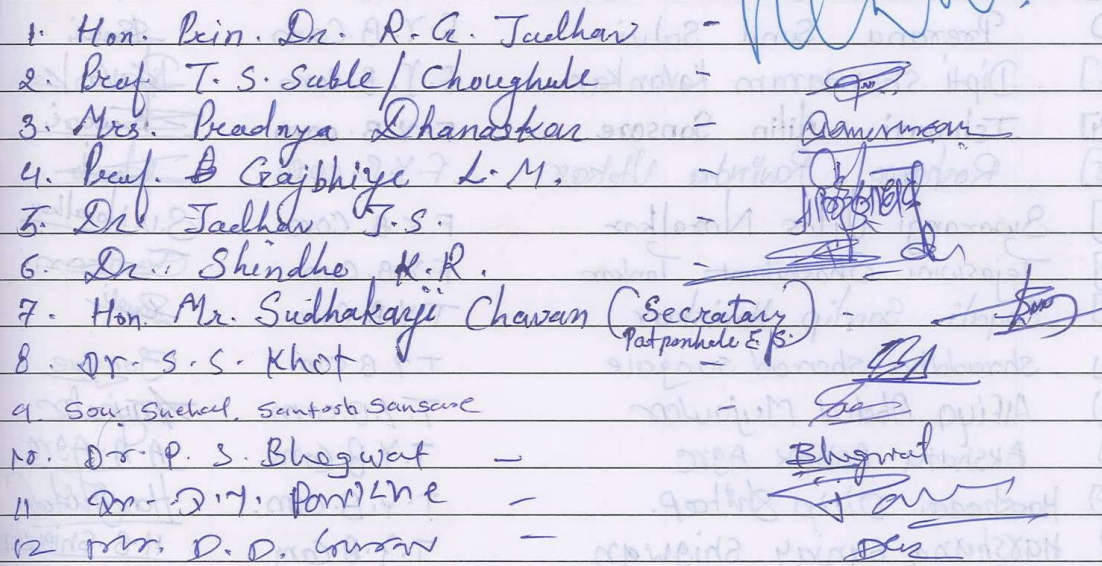 1. Hon. Prin. Dr. R. G. Jadhav -
2. Prof. T. S. Sable / Choughule -
3. Mrs. Pradnya Dhanaskar -
4. Prof. Gajbhiye L. M. -
5. Dr. Jadhav J. S. -
6. Dr. Shindhe K. R. -
7. Hon. Mr. Sudhakarji Chavan (Secretary) -
Patpanhale E/S.
8. Dr. S. S. Khot -
9. Sou. Snehal. Santosh Sansare -
10. Dr. P. S. Bhagwat - Bhagwat
11 Dr. D. Y. -
12 Mr. D. D. -